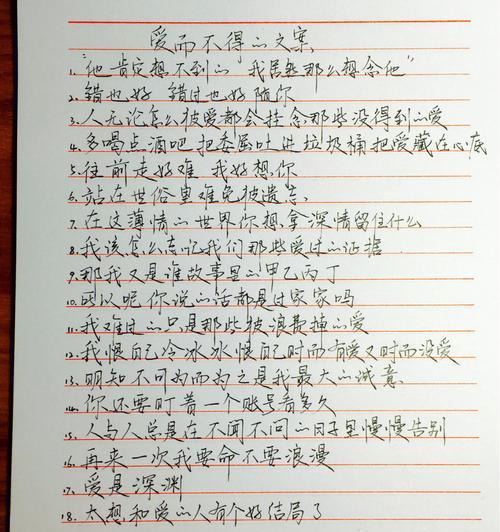 爱而不得的文案
1. "他肯定想不到的 我居然那么想念他"
2. 错也好 错过也好 随你
3. 人无论怎么被爱都会挂念那些没得到的爱
4. 多喝点酒吧 把委屈吐进垃圾桶 把爱藏在心底
5. 往前走好难 我好想你
6. 站在世俗里难免被遗忘
7. 在这薄情的世界你想拿深情留住什么
8. 我该怎么忘记我们那些爱过的证据
9. 那我又是谁故事里的甲乙丙丁
10. 所以呢 你说的话都是过家家吗
11. 我难过的只是那些被浪费掉的爱
12. 我恨自己冷冰冰恨自己时而有爱又时而没爱
13. 明知不可为而为之是我最大的诚意
14. 你还要盯着一个账号看多久
15. 人与人总是在不闻不问的日子里慢慢告别
16. 再来一次我要命不要浪漫
17. 爱是深渊
18. 太想和爱的人有个好结局了